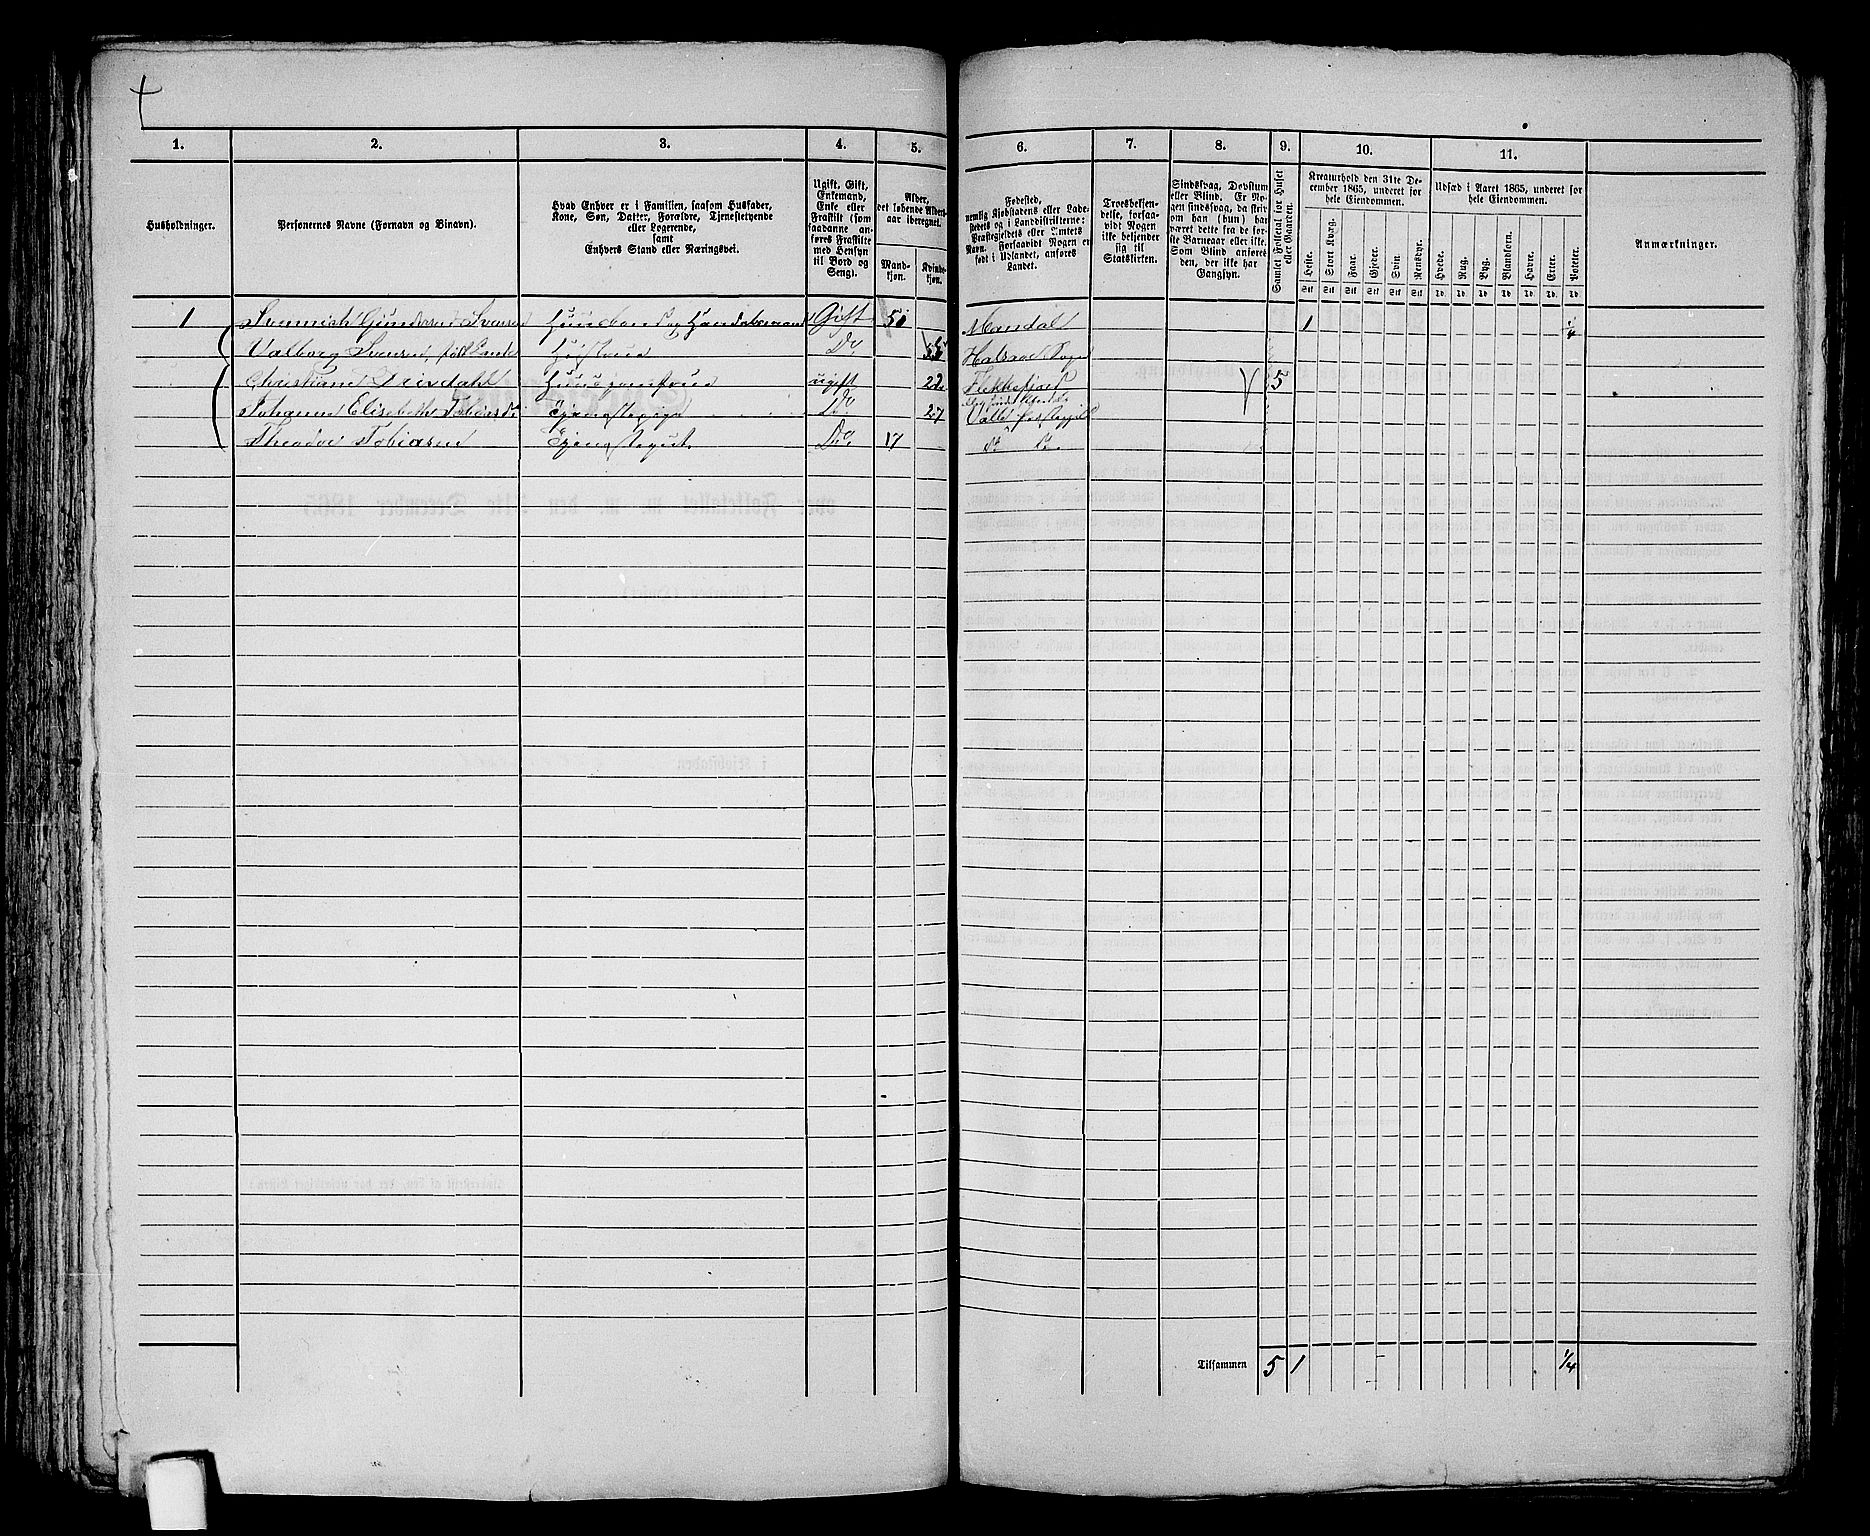 1. 2. 3. 4. 5. 6. 7. 8. 9. 10. 11.
Husholdninger.
Personernes Navne (Fornavn og Binavn).
Hvad Enhver er i Familien, saasom Husfader,
Kone, Søn, Datter, Forældre, Tjenestetyende
eller Logerende,
samt
Enhvers Stand eller Næringsvei.
Ugift, Gift,
Enkemand,
Enke eller
Fraskilt (som
saadanne an-
føres Fraskilte
med Hensyn
til Bord og
Seng).
Alder,
det løbende Alders-
aar iberegnet.
Mand-
kjøn.
Kvinde-
kjøn.
Fødested,
nemlig Kjøbstadens eller Lade-
stedets og i Landdistrikterne:
Præstegjeldets eller Amtets
Navn. Forsaavidt Nogen er
født i Udlandet, anføres
Landet.
Troesbekjen-
delse, forsaa-
vidt Nogen
ikke bekjender
sig til
Statskirken.
Sindssvag, Døvstum
eller Blind. Er No-
gen sindssvag, da skriv
om han (hun) har
været dette fra de før-
ste Barneaar eller ikke.
Som Blind anføres
den, der ikke har
Gangsyn.
Samlet Folketal for Huset
eller Gaarden.
Kreaturhold den 31te De-
cember 1865, underet for
hele Eiendommen.
Heste.
Stort Kvæg.
Faar.
Gjeder.
Svin.
Rensdyr.
Stk Stk Stk Stk Stk Stk
Udsæd i Aaret 1865, underet for
hele Eiendommen.
Hvede.
Rug.
Byg.
Blandkorn.
Havre.
Erter.
Poteter.
Td. Td. Td. Td. Td. Td. Td.
Anmærkninger.
1 Svennich Gundersen Svensen Huusbond og Handelsmand Gift 51 Mandal 1 1/4
Valborg Svensen, født Do
Christiane Drivdahl Huusjomfrue ugift 22 Flekkefjord 5
Johanne Elisabeth Tobiasd. Tjenestepige Do. 27
Theodor Tobiasen Tjenestegut. Do. 17 do do
Tilsammen 5 1 1/4